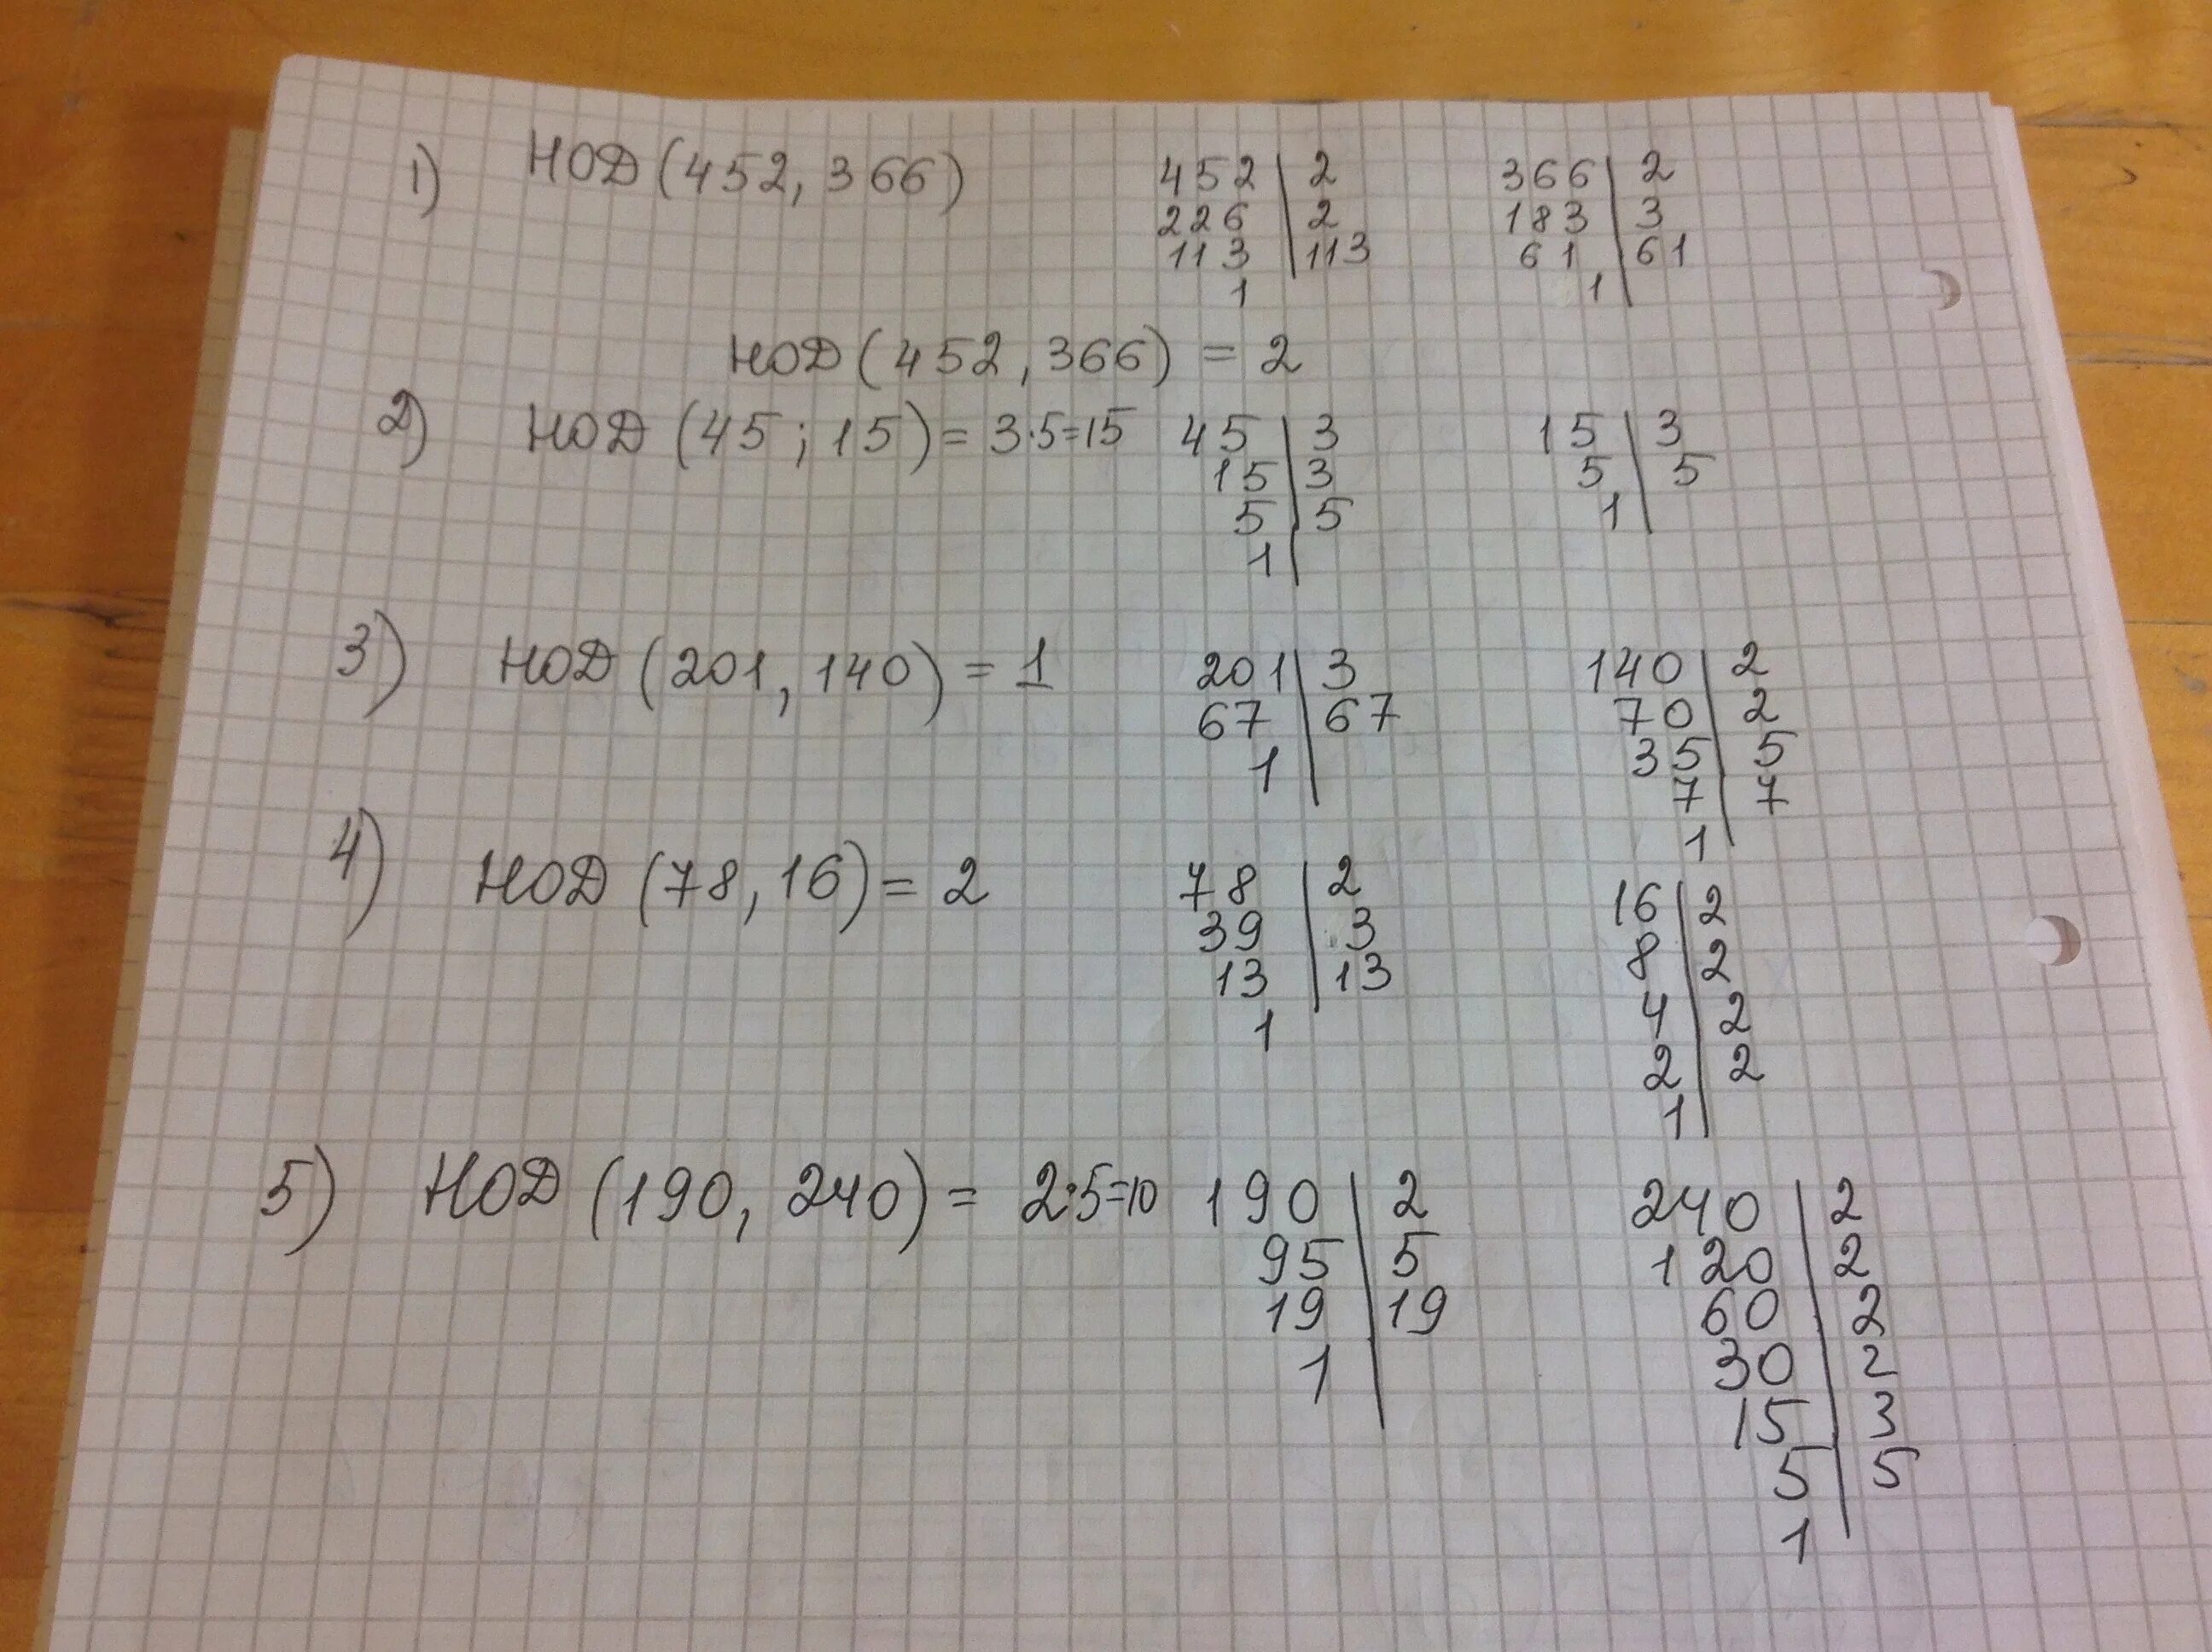 1) НОД (452, 366)
452 | 2
226 | 2
113 | 113
1
366 | 2
183 | 3
61 | 61
1
НОД (452, 366) = 2
2) НОД (45 ; 15) = 3·5=15
45 | 3
15 | 3
5 | 5
1
15 | 3
5 | 5
1
3) НОД (201, 140) = 1
201 | 3
67 | 67
1
140 | 2
70 | 2
35 | 5
7 | 7
1
4) НОД (78, 16) = 2
78 | 2
39 | 3
13 | 13
1
16 | 2
8 | 2
4 | 2
2 | 2
1
5) НОД (190, 240) = 2·5=10
190 | 2
95 | 5
19 | 19
1
240 | 2
120 | 2
60 | 2
30 | 2
15 | 3
5 | 5
1